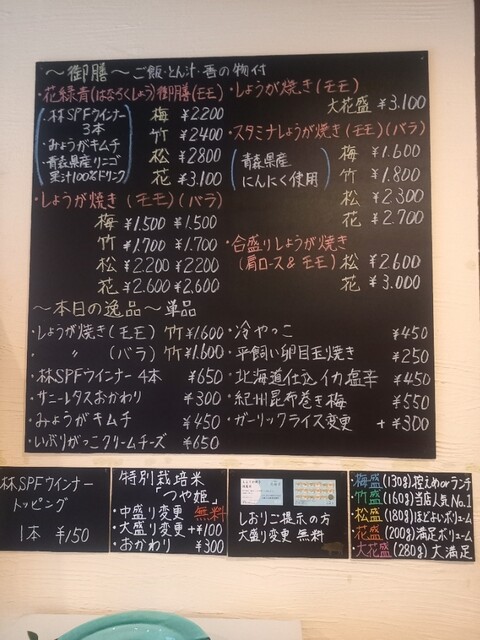 ～御膳～ ご飯・とん汁・香の物付
・花緑青(はなろくしょう)御膳(モモ)
林SPFウインナー3本
みょうがキムチ
青森県産リンゴ果汁100%ドリンク
梅 ¥2200
竹 ¥2400
松 ¥2800
花 ¥3,100
・しょうが焼き(モモ)(バラ)
梅 ¥1.500 ¥1.500
竹 ¥1.700 ¥1.700
松 ¥2.200 ¥2200
花 ¥2.600 ¥2.600
・しょうが焼き(モモ)
大花盛 ¥3.100
・スタミナしょうが焼き(モモ)(バラ)
青森県産
にんにく使用
梅 ¥1.600
竹 ¥1.800
松 ¥2300
花 ¥2.700
・合盛りしょうが焼き
(肩ロース&モモ) 松 ¥2.600
花 ¥3.000
～本日の逸品～単品
・しょうが焼き(モモ) 竹 ¥1600
・ 〃 (バラ) 竹 ¥1.600
・林SPFウインナー 4本 ¥650
・サニーレタスおかわり ¥300
・みょうがキムチ ¥450
・いぶりがっこクリームチーズ ¥650
・冷やっこ ¥450
・平飼い卵目玉焼き ¥250
・北海道仕込イカ塩辛 ¥450
・紀州昆布巻き梅 ¥550
・ガーリックライス変更 +¥300
林SPFウインナー
トッピング
1本 ¥150
特別栽培米
「つや姫」
・中盛り変更 無料
・大盛り変更 +¥100
・おかわり ¥300
しおりご提示の方
大盛り変更 無料
・梅盛(130g)控えめorランチ
・竹盛(160g)当店人気No.1
・松盛(180g)ほどよいボリューム
・花盛(200g)満足ボリューム
・大花盛(280g)大満足